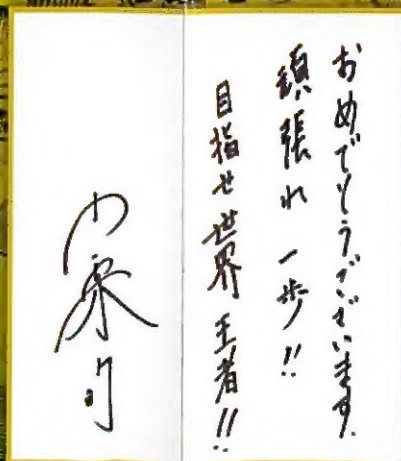 おめでとうございます。
頑張れ 一歩!!
目指せ世界王者!!